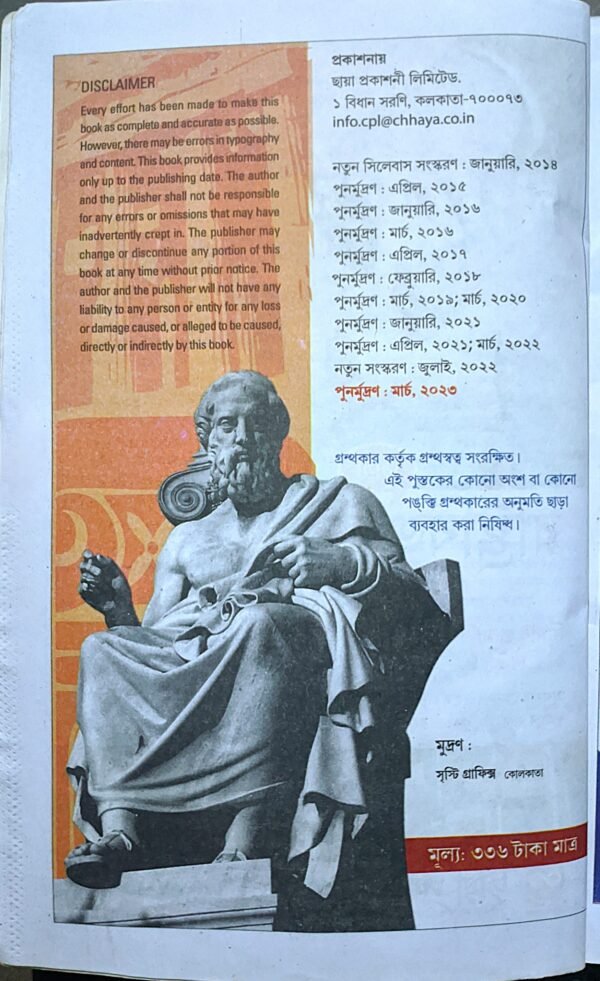 DISCLAIMER
Every effort has been made to make this
book as complete and accurate as possible.
However, there may be errors in typography
and content. This book provides information
only up to the publishing date. The author
and the publisher shall not be responsible
for any errors or omissions that may have
inadvertently crept in. The publisher may
change or discontinue any portion of this
book at any time without prior notice. The
author and the publisher will not have any
liability to any person or entity for any loss
or damage caused, or alleged to be caused,
directly or indirectly by this book.
প্রকাশনায়
ছায়া প্রকাশনী লিমিটেড.
১ বিধান সরণি, কলকাতা-৭০০০৭৩
info.cpl@chhaya.co.in
নতুন সিলেবাস সংস্করণ : জানুয়ারি, ২০১৪
পুনর্মুদ্রণ : এপ্রিল, ২০১৫
পুনর্মুদ্রণ : জানুয়ারি, ২০১৬
পুনর্মুদ্রণ : মার্চ, ২০১৬
পুনর্মুদ্রণ : এপ্রিল, ২০১৭
পুনর্মুদ্রণ : ফেব্রুয়ারি, ২০১৮
পুনর্মুদ্রণ : মার্চ, ২০১৯; মার্চ, ২০২০
পুনর্মুদ্রণ : জানুয়ারি, ২০২১
পুনর্মুদ্রণ : এপ্রিল, ২০২১; মার্চ, ২০২২
নতুন সংস্করণ : জুলাই, ২০২২
পুনর্মুদ্রণ : মার্চ, ২০২৩
গ্রন্থকার কর্তৃক গ্রন্থস্বত্ব সংরক্ষিত।
এই পুস্তকের কোনো অংশ বা কোনো
পঙ্‌ক্তি গ্রন্থকারের অনুমতি ছাড়া
ব্যবহার করা নিষিদ্ধ।
মুদ্রণ :
সৃস্টি গ্রাফিক্স কোলকাতা
মূল্য: ৩৩৬ টাকা মাত্র